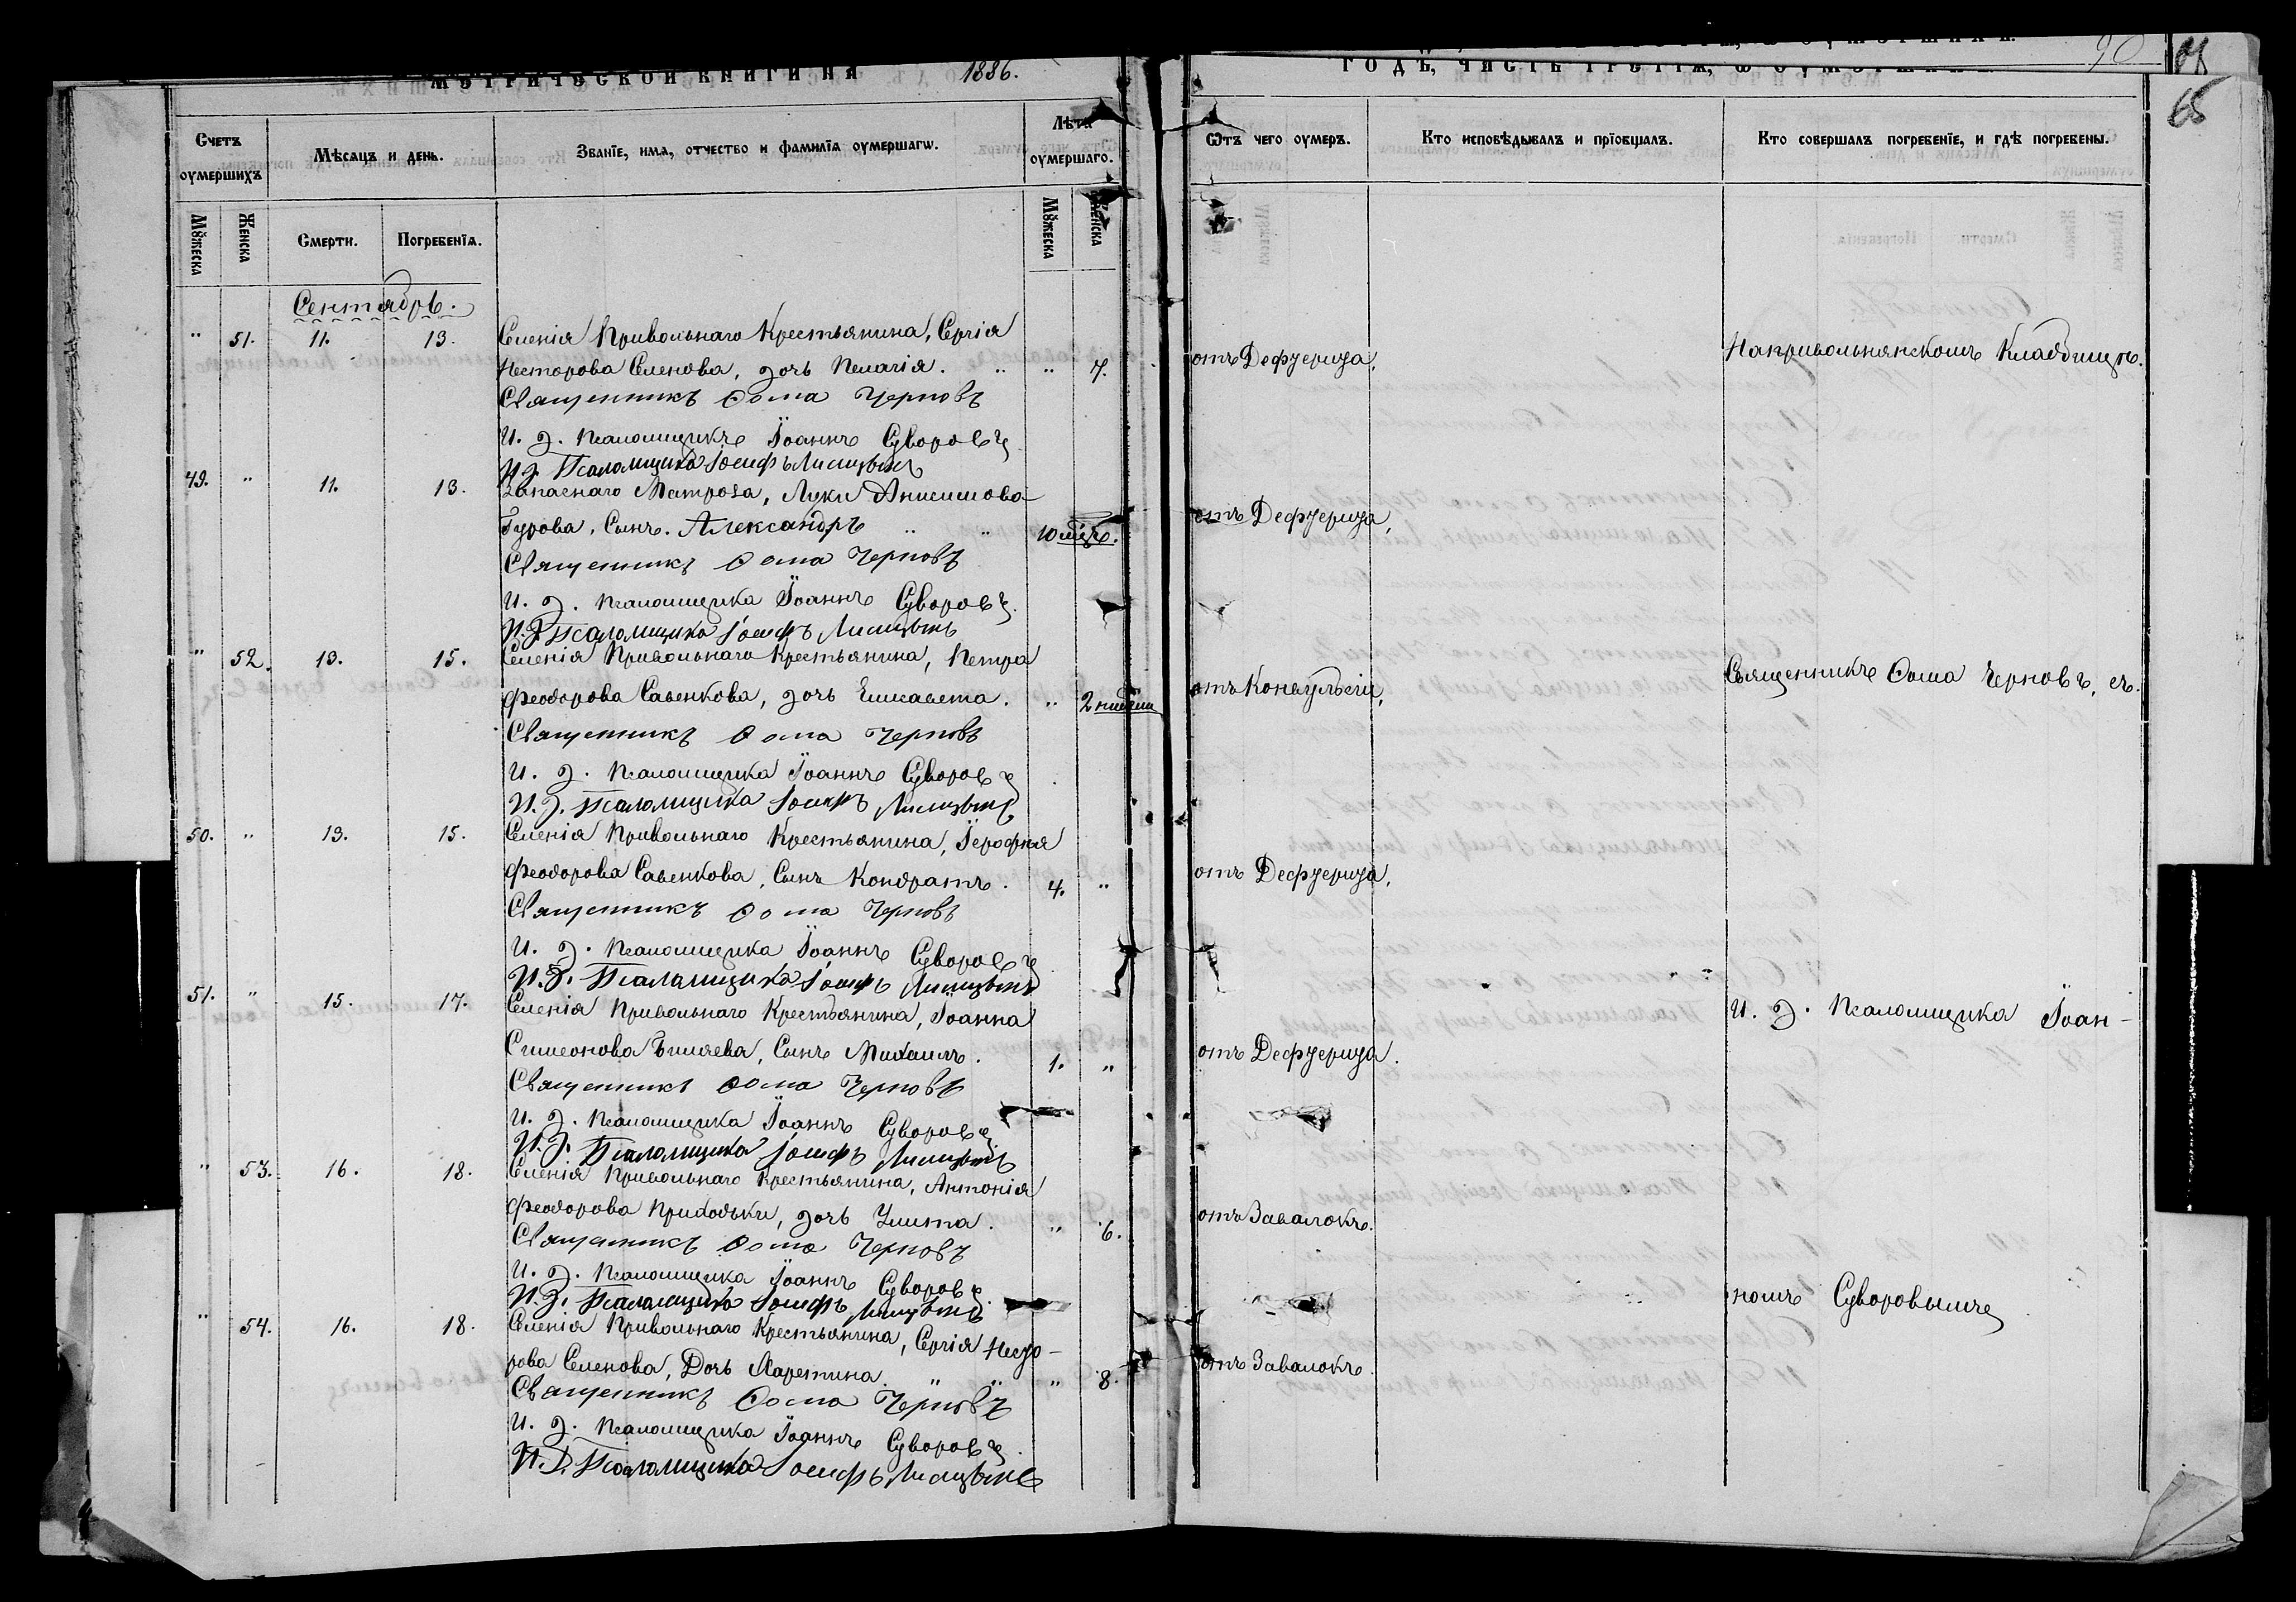 МЕТРИЧЕСКОЙ КНИГИ НА 1886.
ГОДЪ, ЧАСТЬ ТРЕТІЯ, Ѡ ОУМЕРШИХЪ.
90
65
Счетъ оумершихъ
Мѣсяцъ и день.
Званїе, имѧ, отчество и фамилїѧ оумершагѡ.
Лѣта оумершаго.
Ѿтъ чего оумеръ.
Кто исповѣдывалъ и прїобщалъ.
Кто совершалъ погребенїе, и гдѣ погребены.
Мꙋжеска
Женска
Смерти.
Погребенїѧ.
Мꙋжеска
Женска
Сентябрь.
" 51. 11. 13. Селенія Привольнаго Крестьянина, Сергія
Несторова Семенова, дочь Пелагія. " 7. отъ Дефтерита, На привольнянскомъ Кладбищѣ.
Священникъ Ѳома Черновъ
И. Д. Псаломщика Іоаннъ Суворовъ
И. Д. Псаломщика Іосифъ Лисицынъ
49. " 11. 13. Запаснаго Матроза, Луки Анисимова
Гурова, Сынъ. Александръ 10 мѣс. отъ Дефтерита,
Священникъ Ѳома Черновъ
И. Д. Псаломщика Іоаннъ Суворовъ
И. Д. Псаломщика Іосифъ Лисицынъ
" 52. 13. 15. Селенія Привольнаго Крестьянина, Петра
Феодорова Савенкова, дочь Елисавета. " 2 недѣли отъ Конвульсіи, Священникъ Ѳома Черновъ, съ
Священникъ Ѳома Черновъ
И. Д. Псаломщика Іоаннъ Суворовъ
И. Д. Псаломщика Іосифъ Лисицынъ
50. " 13. 15. Селенія Привольнаго Крестьянина, Іерофея
Феодорова Савенкова, Сынъ Кондратъ. 4. " отъ Дефтерита,
Священникъ Ѳома Черновъ
И. Д. Псаломщика Іоаннъ Суворовъ
И. Д. Псаломщика Іосифъ Лисицынъ
51. " 15. 17. Селенія Привольнаго Крестьянина, Іоанна И. Д. Псаломщика Іоан-
Симеонова, Сынъ Михаилъ. 1. " отъ Дефтерита.
Священникъ Ѳома Черновъ
И. Д. Псаломщика Іоаннъ Суворовъ
И. Д. Псаломщика Іосифъ Лисицынъ
" 53. 16. 18. Селенія Привольнаго Крестьянина, Антонія
Феодорова Приходьки, дочь Улита. " 6. отъ Завалокъ.
Священникъ Ѳома Черновъ
И. Д. Псаломщика Іоаннъ Суворовъ
И. Д. Псаломщика Іосифъ Лисицынъ номъ Суворовымъ
" 54. 16. 18. Селенія Привольнаго Крестьянина, Сергія Несто-
рова Семенова, Дочь Харетина. " 8. отъ Завалокъ.
Священникъ Ѳома Черновъ
И. Д. Псаломщика Іоаннъ Суворовъ
И. Д. Псаломщика Іосифъ Лисицынъ